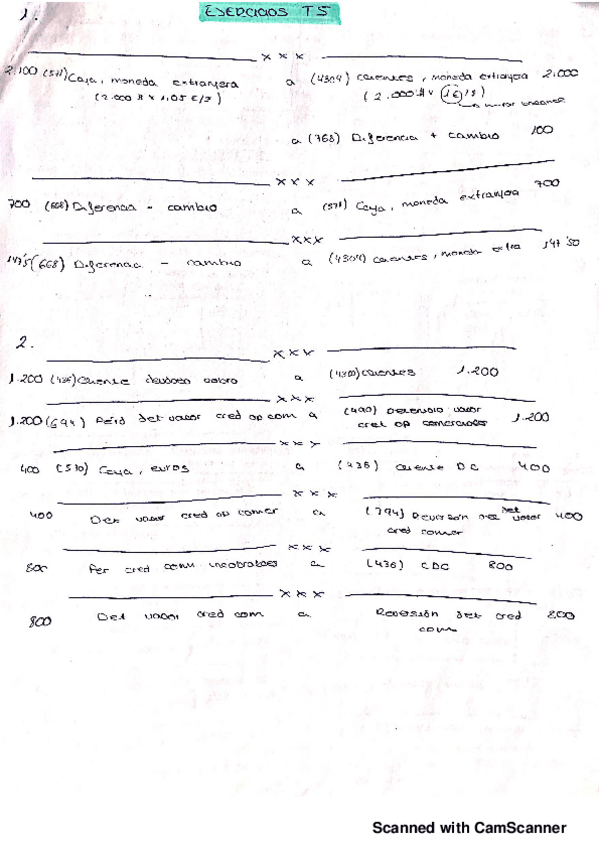 EJERCICIOS T5
1.
x x x
2.100 (571) Caja, moneda extranjera a (4304) clientes, moneda extranjera 2.000
(2.000 $ x 1,05 €/$) (2.000 $ x 1€/$)
a (768) Diferencia + cambio 100
x x x
700 (668) Diferencia - cambio a (571) Caja, moneda extranjera 700
x x x
147'5 (668) Diferencia - cambio a (4304) clientes, moneda extra 147'50
2.
x x x
1.200 (436) Cliente dudoso cobro a (4300) clientes 1.200
x x x
1.200 (694) Perd det valor cred op com a (490) Deterioro valor 1.200
cred op comerciales
x x x
400 (570) Caja, euros a (436) cliente DC 400
x x x
400 Det valor cred op comer a (794) Reversión det valor 400
cred comer
x x x
800 Per cred com incobrables a (436) CDC 800
x x x
800 Det valor cred com a Reversión det cred 800
com
Scanned with CamScanner